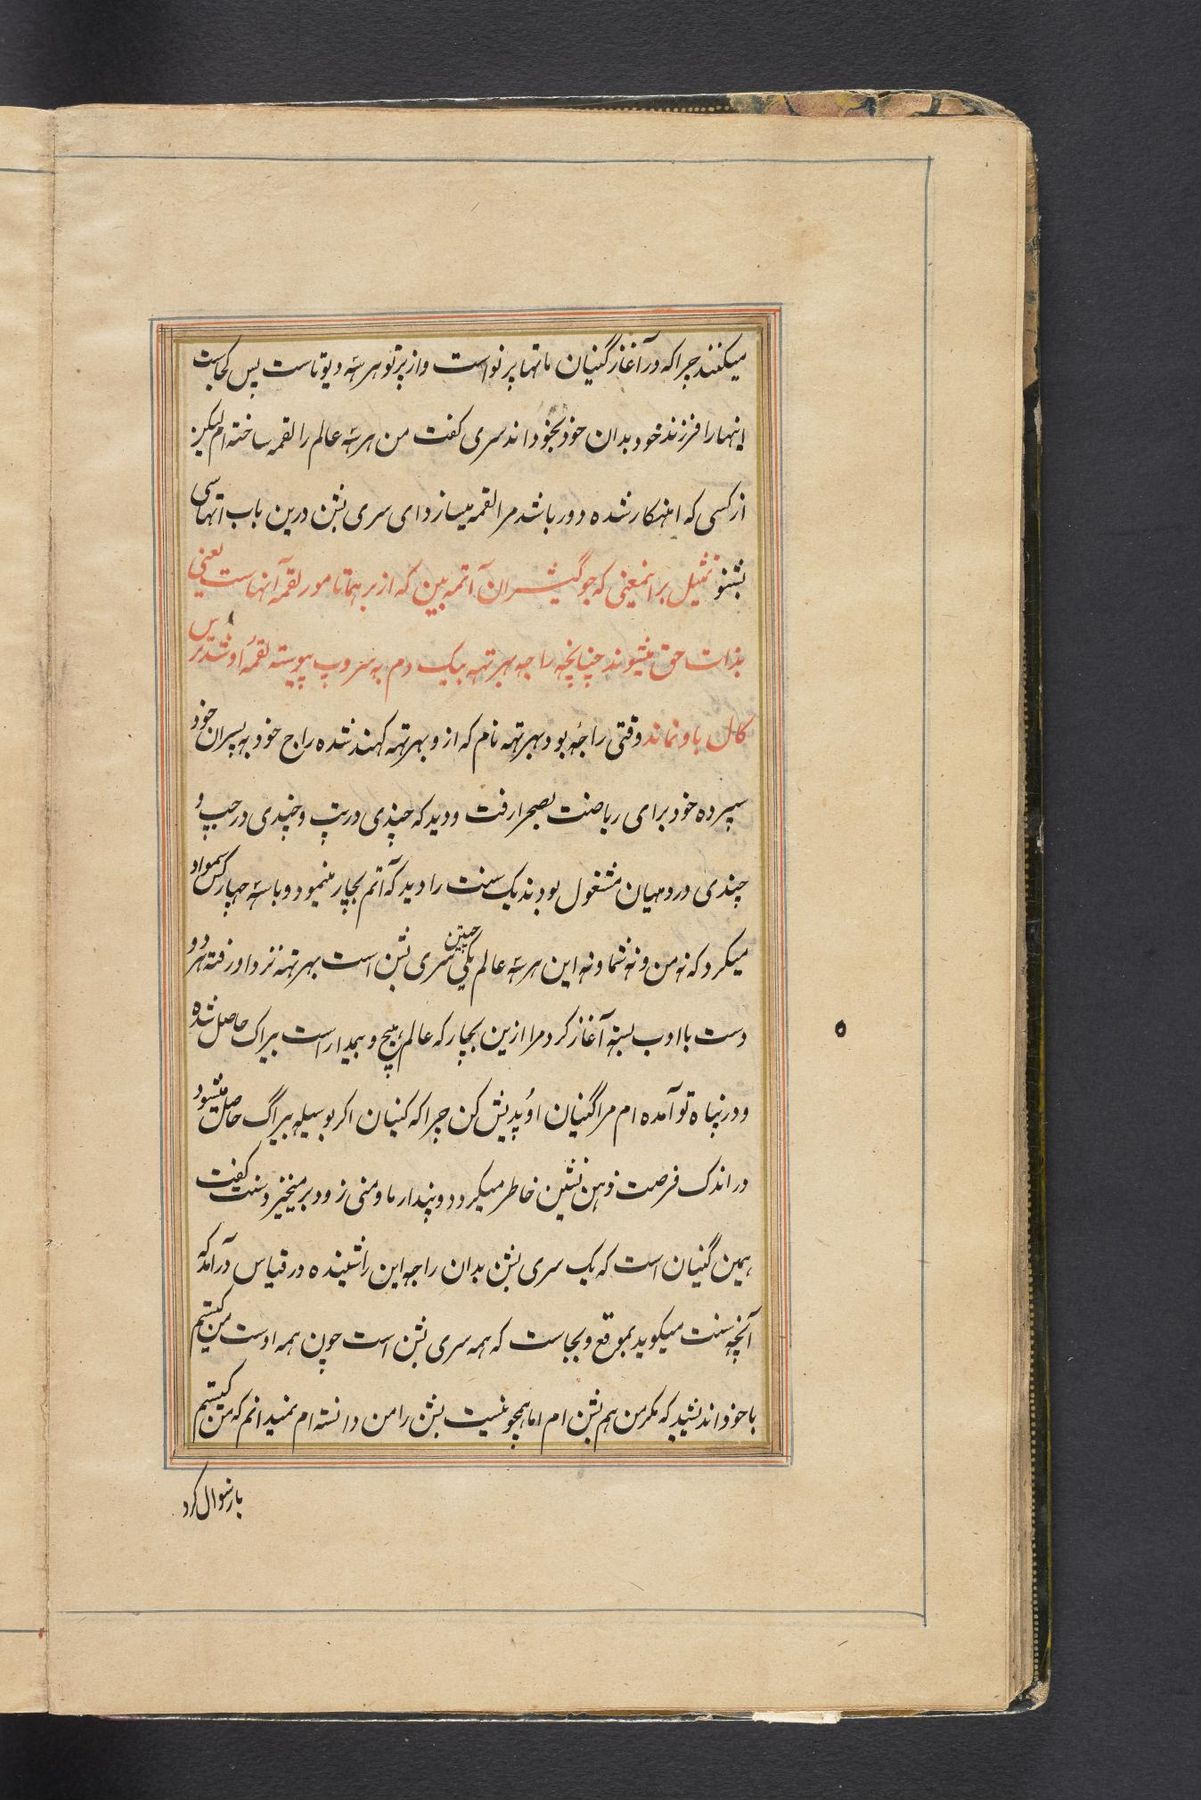 میکنند چرا که در آغاز گنیان مانتها پرتو است و از پرتو هر سه دیوتاست پس کجاست
اینها را فرزند خود بدان خود بخود اند سری گفت من هر سه عالم را لقمه ساخته ام لیکن
از کسی که اهنکار شده دور باشد مرا لقمه میسازد ای سری بشن درین باب اتهاسی
بشنو تمثیل برانمعنی که جوگیشران آتمه بین که از برهما تا مور لقمه آنهاست یعنی
بذات حق میشوند چنانچه راجه بهرتهه بیک دم به سروپ پیوسته لقمهٔ او شد ترس
کال باو نماند وقتی راجهٔ بود بهرتهه نام که از و بهرتهه کهند شده راج خود به پسران خود
سپرده خود برای ریاضت بصحرا رفت و دید که چندی در تپ و چندی در جپ و
چندی در دهیان مشغول بودند یک سنت را دید که آتم بچار مینمود و با سه چهار کس سمواد
میکرد که نه من و نه شما و نه این هر سه عالم یکی چتین سری بشن است بهرتهه نزد او رفته هر دو
دست با ادب بسته آغاز کرد مرا ازین بچار که عالم هیچ و بیمدار است بیراگ حاصل شده
و در پناه تو آمده ام مرا گنیان اوپدیش کن چرا که کنیان اگر بوسیله بیراگ حاصل میشود
در اندک فرصت ذهن نشین خاطر میگردد و پندار ما و منی زود بر میخیزد سنت گفت
همین گنیان است که یک سری بشن بدان راجه این را شنیده در قیاس در آمد که
آنچه سنت میگوید بموقع و بجاست که همه سری بشن است چون همه اوست من کیستم
باخود اندیشید که مکر من هم بشن ام اما همچو نیست بشن را من دانسته ام نمیدانم که من کیستم
باز سوال کرد